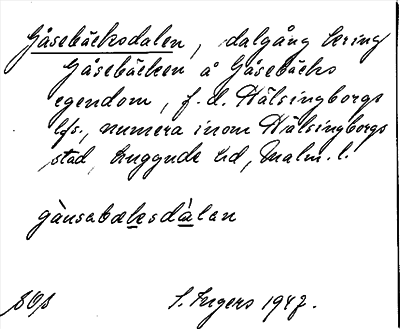 Gåsebäcksdalen, dalgång kring
Gåsebäcken å Gåsebäcks
egendom, f. d. Hälsingborgs
lfs., numera inom Hälsingborgs
stad, Luggude hd, Malm. l.
gàusabæksdàlan
SOs
S. Ingers 1947.